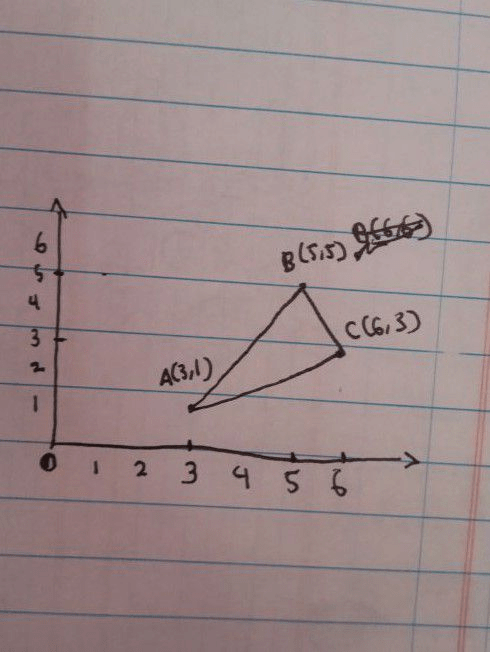 6
B(5,5)
5
4
C(6,3)
3
2
A(3,1)
1
0 1 2 3 4 5 6